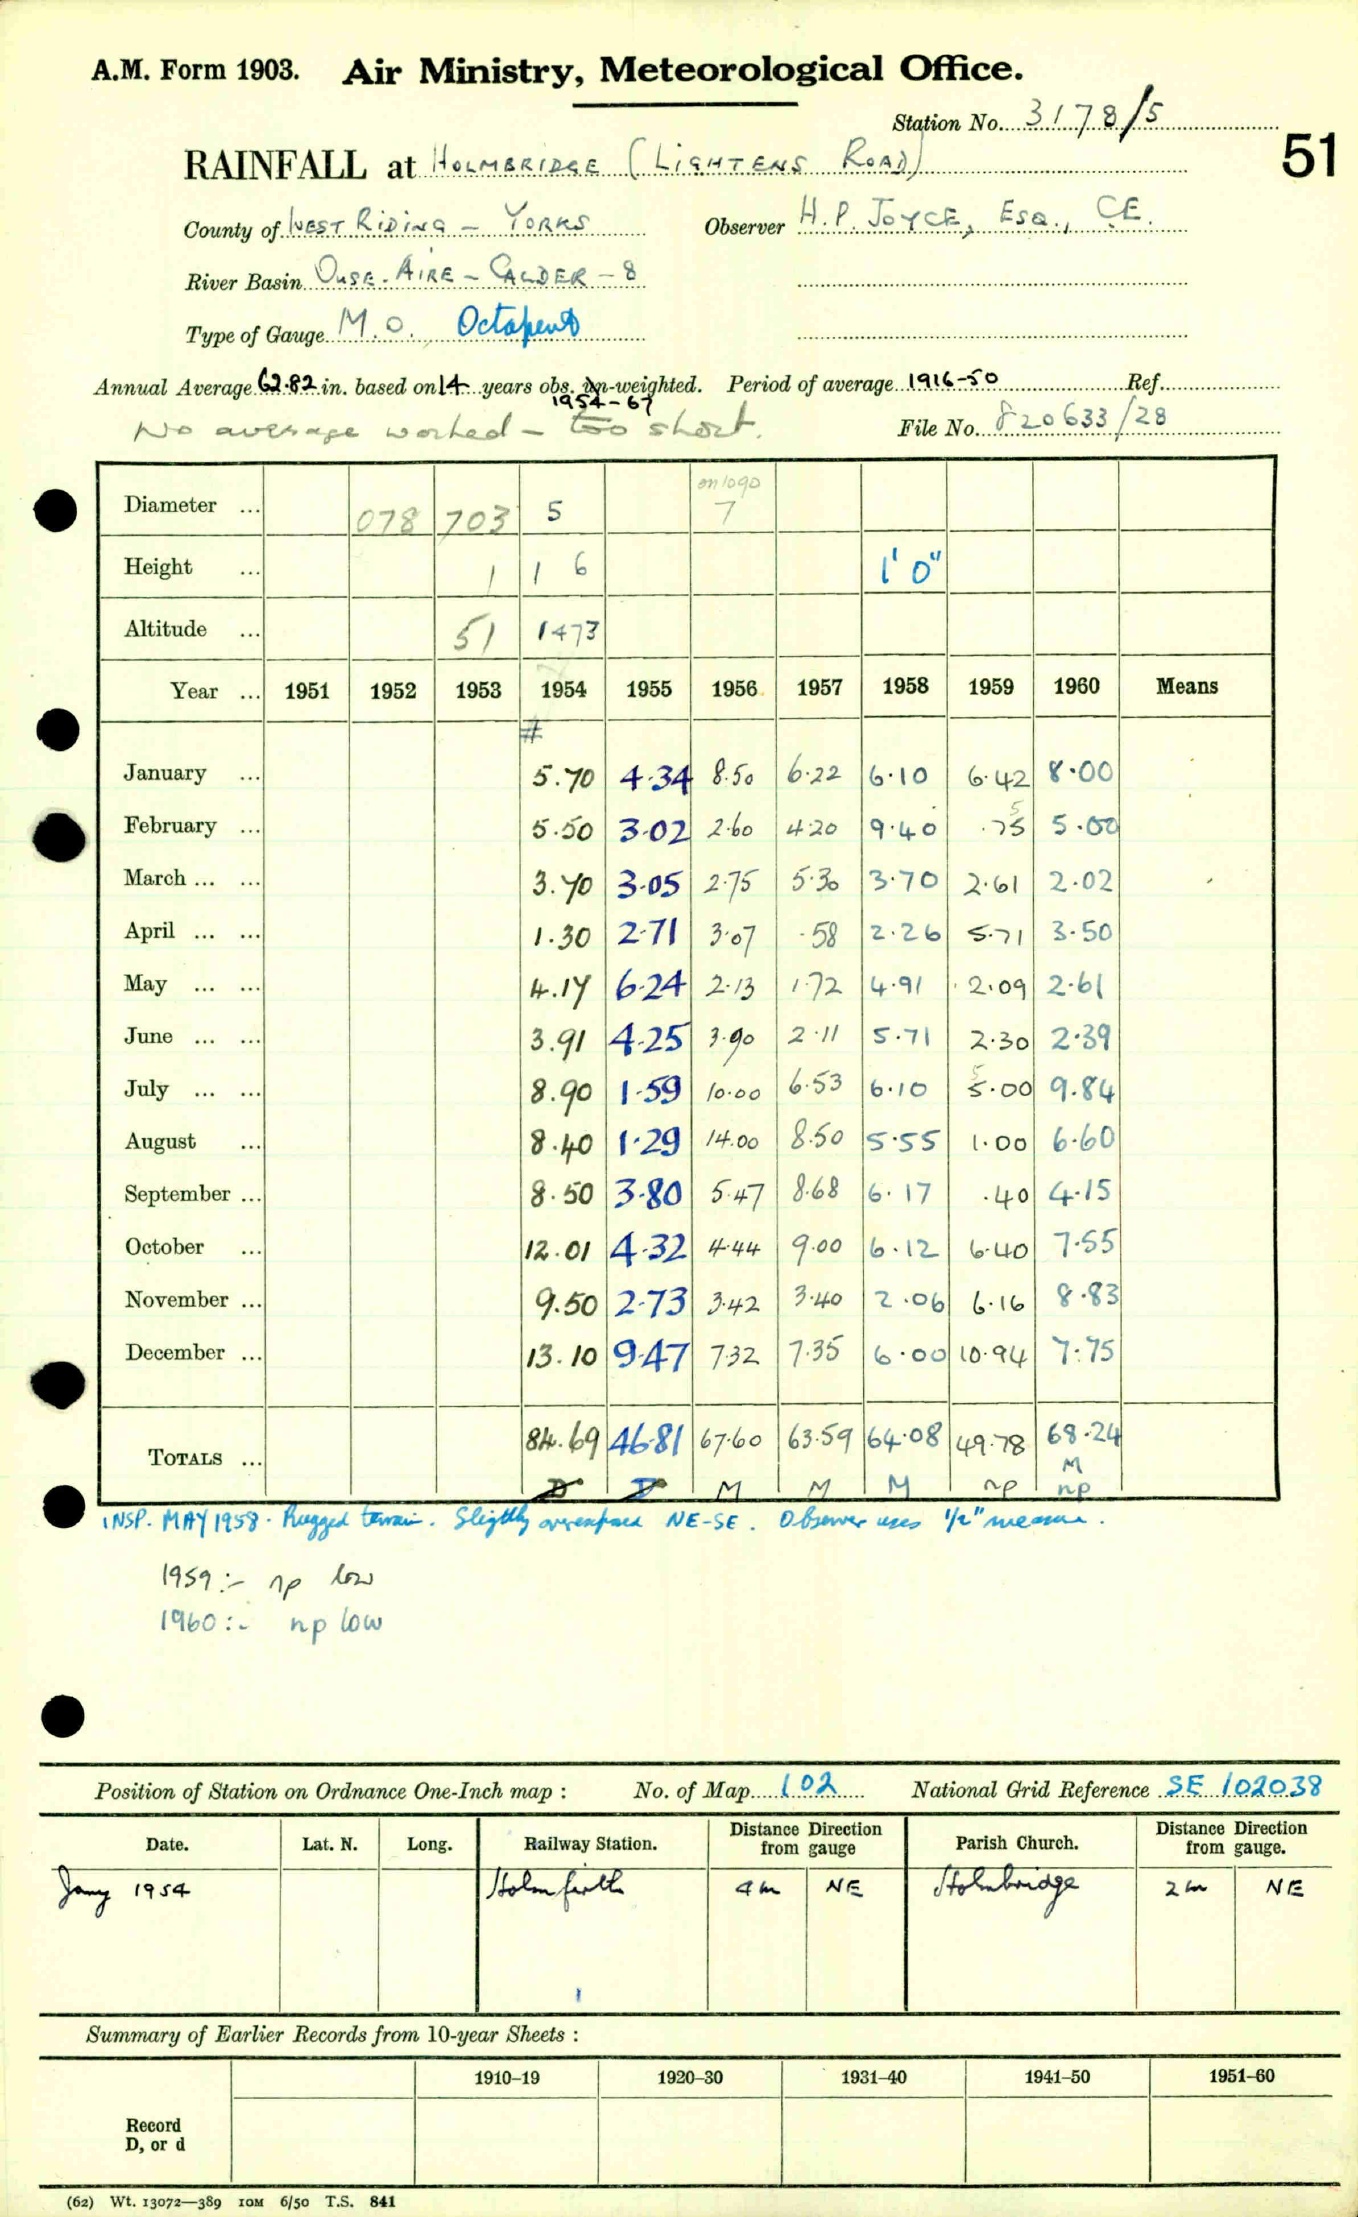 A.M. Form 1903. Air Ministry, Meteorological Office.
Station No. 3178/5
51
RAINFALL at HOLMBRIDGE (LIGHTENS ROAD)
County of WEST RIDING - YORKS Observer H.P. JOYCE, ESQ., C.E.
River Basin OUSE-AIRE-CALDER-8
Type of Gauge M.O. Octapent
Annual Average 62.82 in. based on 14 years obs. un-weighted. Period of average 1916-50 Ref.
1954-67
No average worked - too short. File No. 820633/28
Diameter ... 078 703 5 7
Height ... 1 1 6 1' 0"
Altitude ... 51 1473
Year ... 1951 1952 1953 1954 1955 1956 1957 1958 1959 1960 Means
#
January ... 5.70 4.34 8.50 6.22 6.10 6.42 8.00
February ... 5.50 3.02 2.60 4.20 9.40 .75 5.00
March ... ... 3.70 3.05 2.75 5.30 3.70 2.61 2.02
April ... ... 1.30 2.71 3.07 .58 2.26 5.71 3.50
May ... ... 4.17 6.24 2.13 1.72 4.91 2.09 2.61
June ... ... 3.91 4.25 3.90 2.11 5.71 2.30 2.39
July ... ... 8.90 1.59 10.00 6.53 6.10 5.00 9.84
August ... 8.40 1.29 14.00 8.50 5.55 1.00 6.60
September ... 8.50 3.80 5.47 8.68 6.17 .40 4.15
October ... 12.01 4.32 4.44 9.00 6.12 6.40 7.55
November ... 9.50 2.73 3.42 3.40 2.06 6.16 8.83
December ... 13.10 9.47 7.32 7.35 6.00 10.94 7.75
TOTALS ... 84.69 46.81 67.60 63.59 64.08 49.78 68.24
M
D D M M M np np
INSP. MAY 1958. Rugged terrain. Slightly overexposed NE-SE. Observer uses ½" measure.
1959:- np low
1960:- np low
Position of Station on Ordnance One-Inch map : No. of Map 102 National Grid Reference SE 102038
Date. Lat. N. Long. Railway Station. Distance Direction from gauge Parish Church. Distance Direction from gauge.
Jany 1954 Holmfirth 4m NE Holmbridge 2m NE
Summary of Earlier Records from 10-year Sheets :
1910-19 1920-30 1931-40 1941-50 1951-60
Record
D, or d
(62) Wt. 13072—389 10M 6/50 T.S. 841